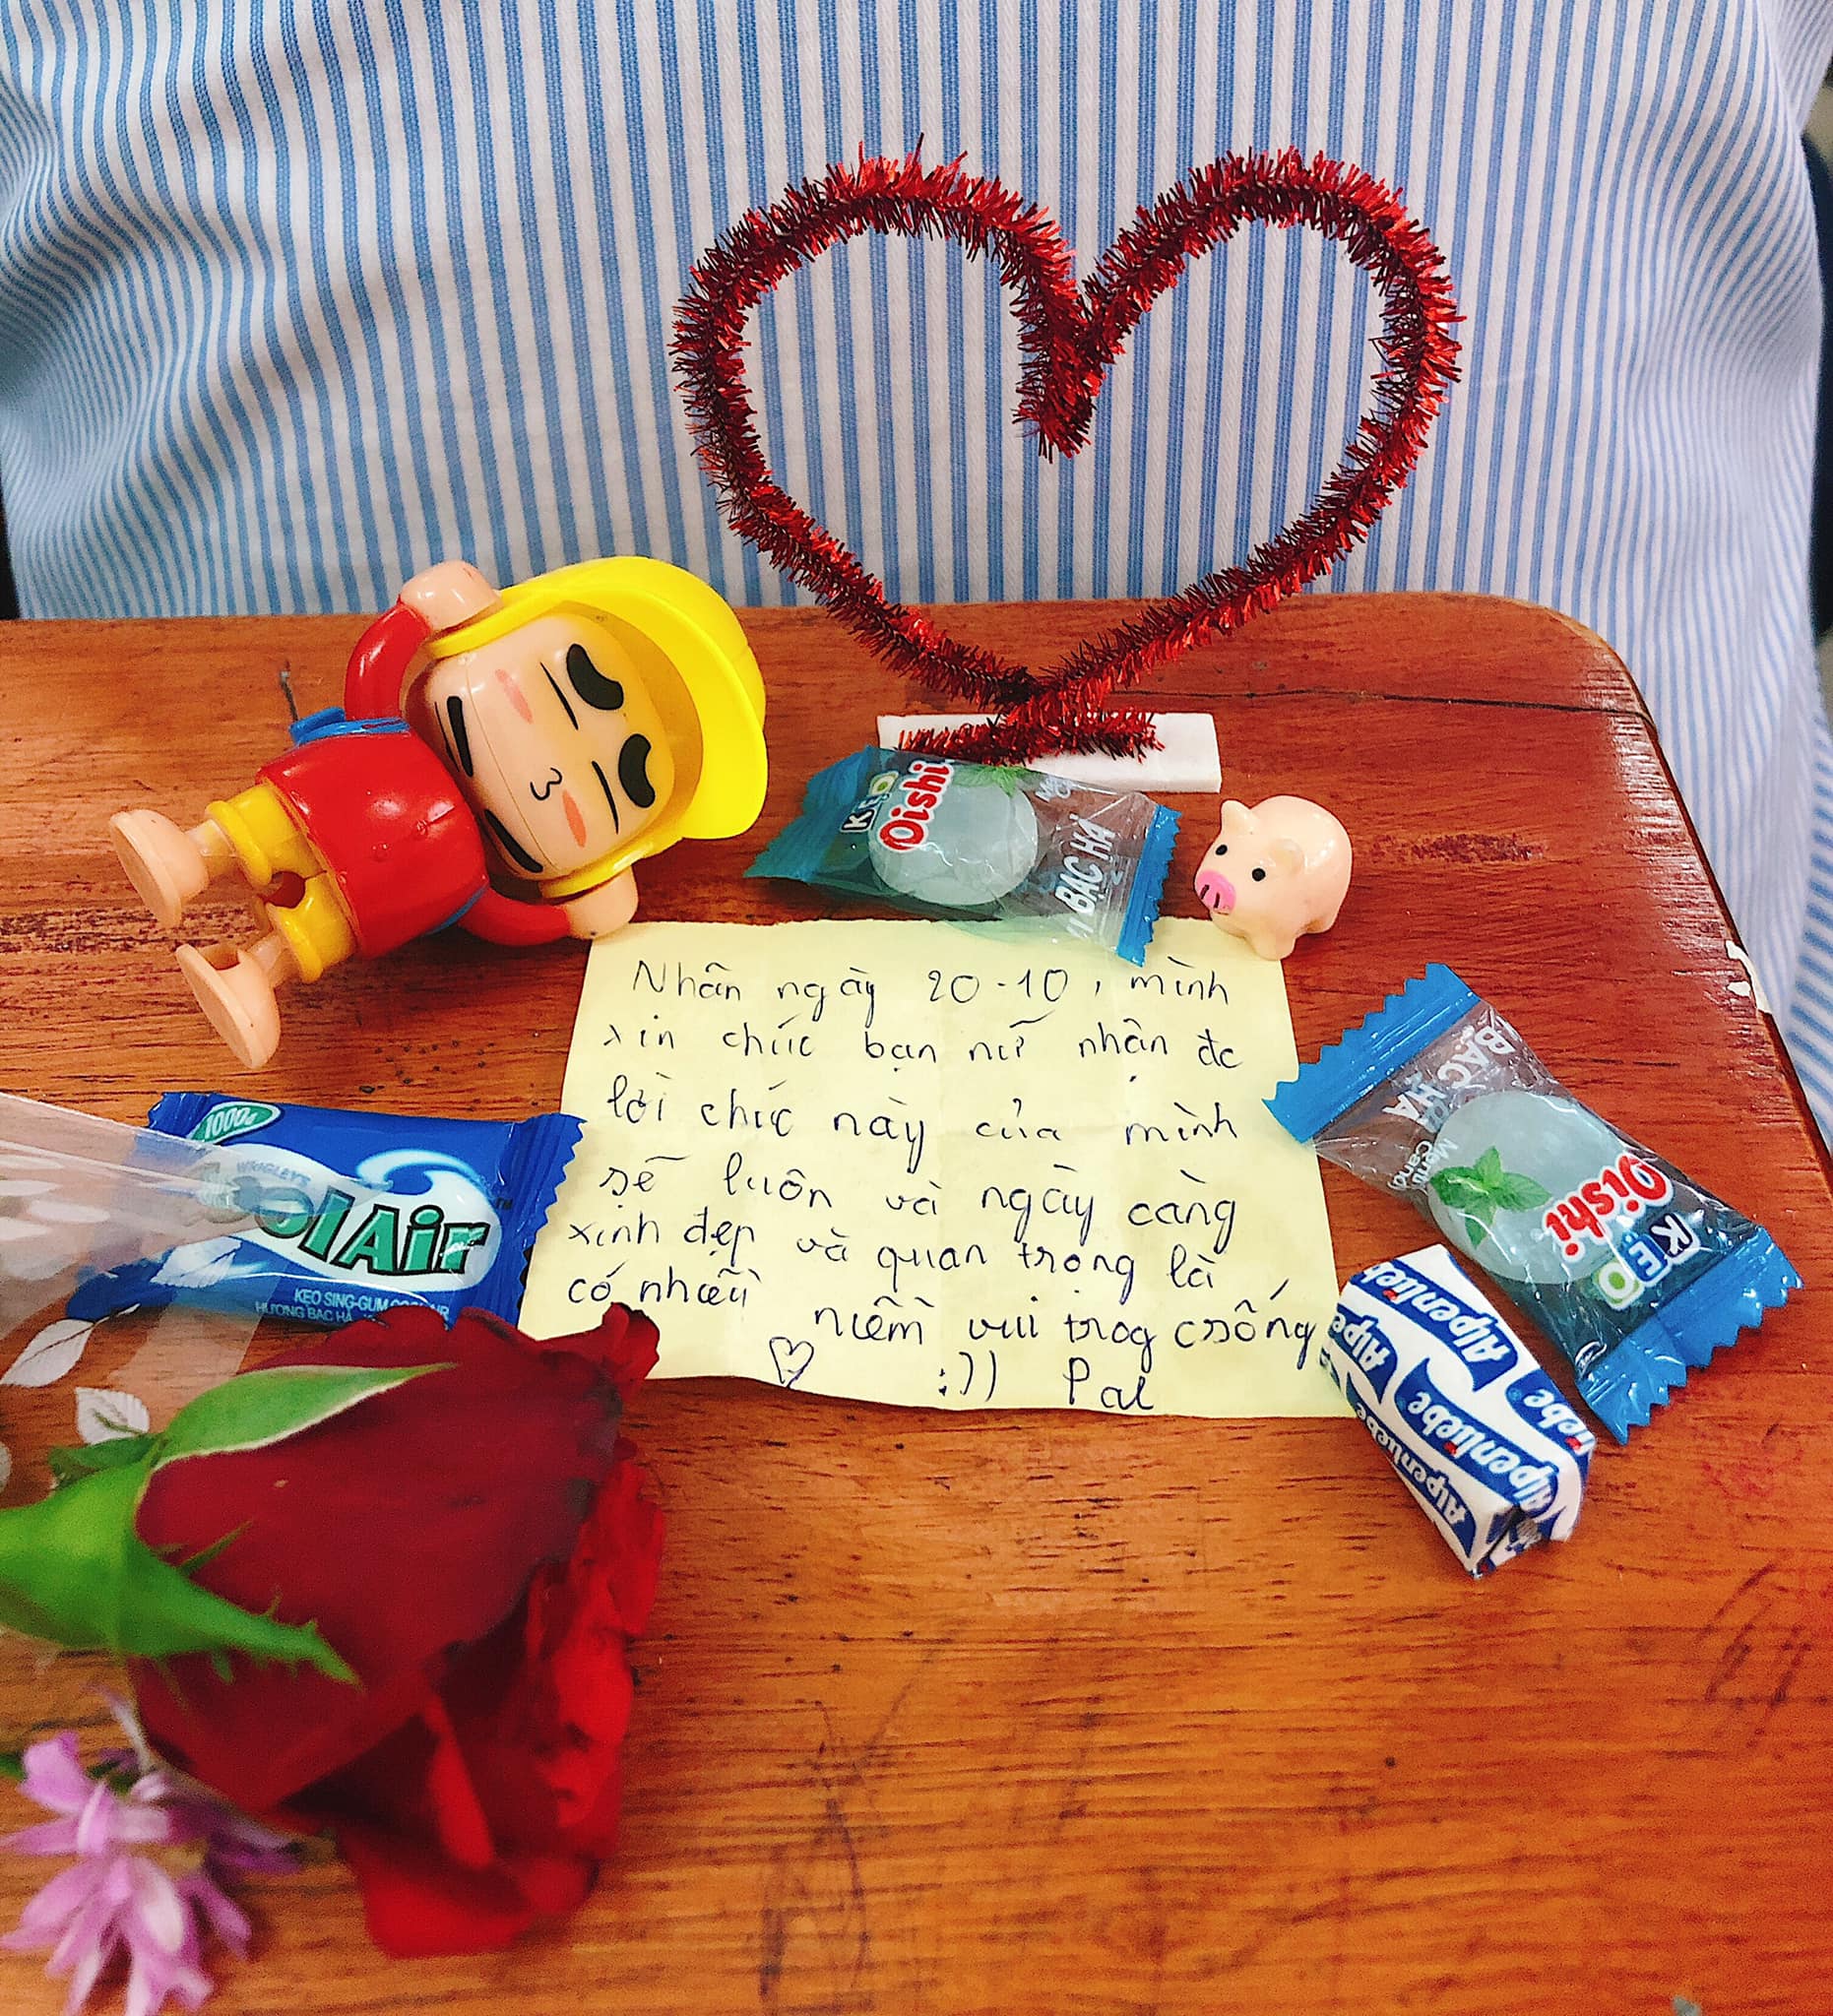 KẸO
Oishi
BẠC HÀ
Nhân ngày 20-10, mình
xin chúc bạn nữ nhận đc
lời chúc này của mình
sẽ luôn và ngày càng
xinh đẹp và quan trọng là
có nhiều
niềm vui trog csống
:)) Pal
1000đ
WRIGLEY'S
olAir
KẸO SING-GUM COOL AIR
HƯƠNG BẠC HÀ
BẠC HÀ
Menth
Candy
Oishi
KẸO
Alpenliebe
Alpenliebe
Alpenliebe
Alpenliebe